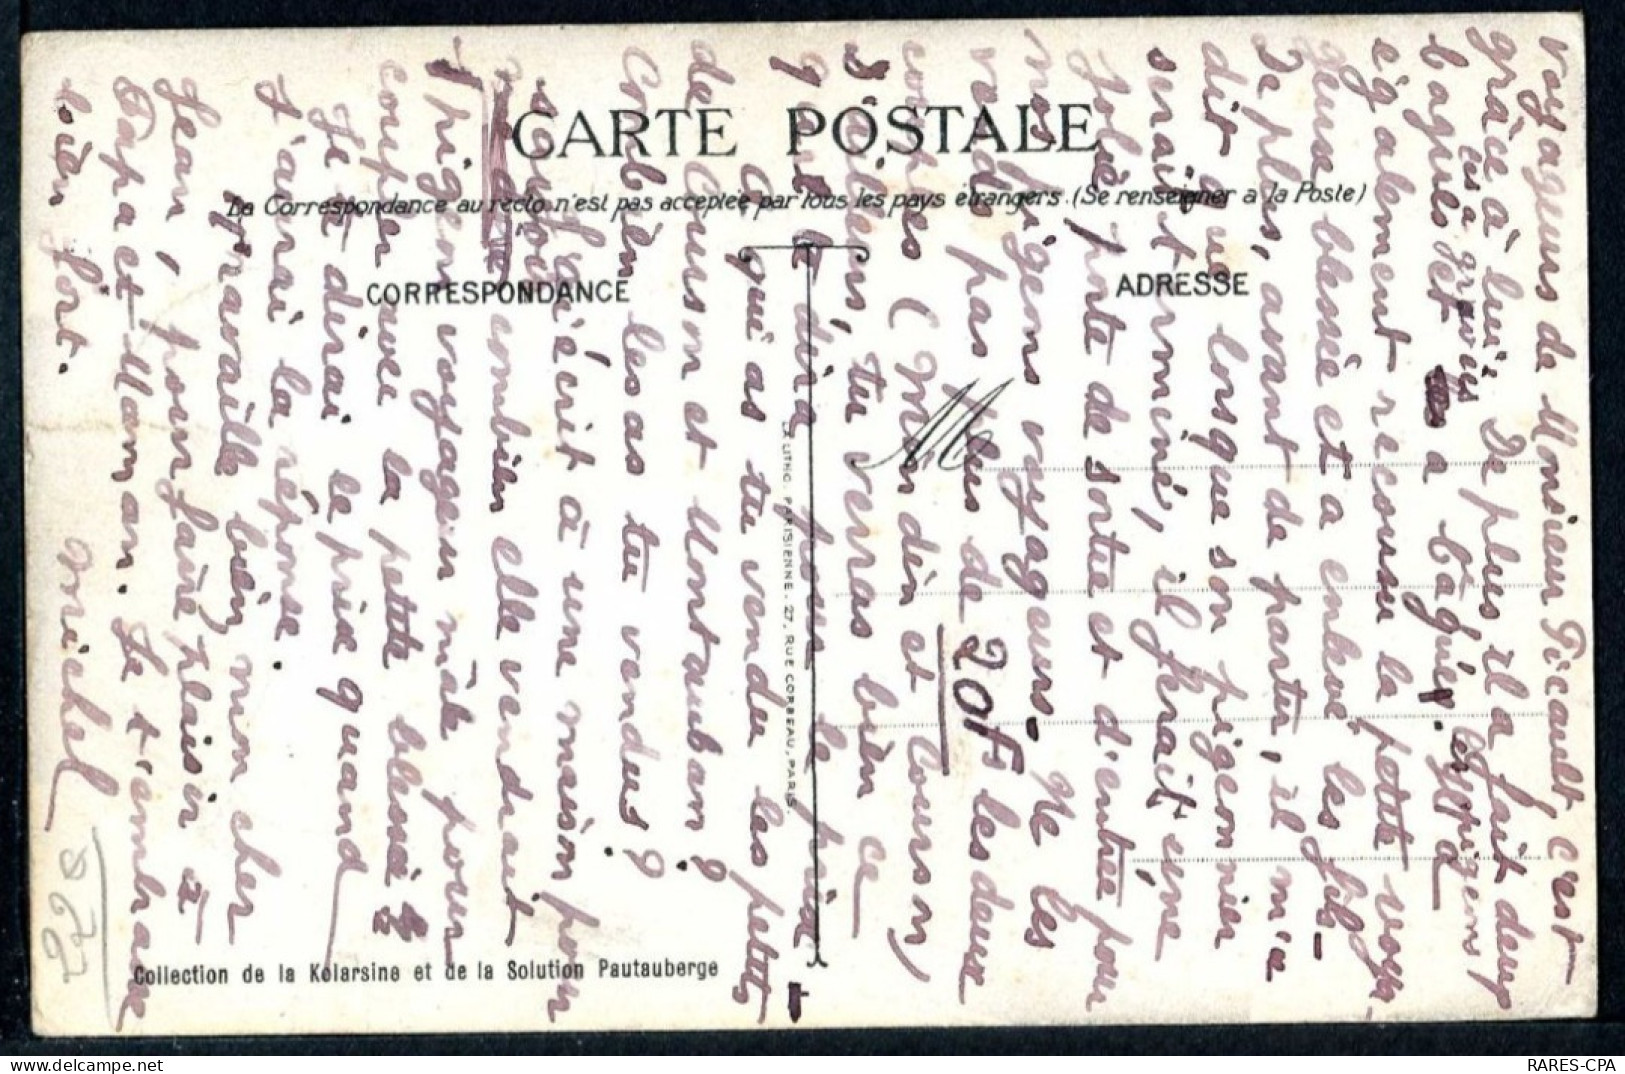 CARTE POSTALE
La Correspondance au recto n'est pas acceptée par tous les pays étrangers. (Se renseigner a la Poste)
CORRESPONDANCE
ADRESSE
M
LA LITHO. PARISIENNE. 27, RUE CORBEAU, PARIS.
Collection de la Kolarsine et de la Solution Pautauberge
voyageurs de Monsieur Picault. C'est
grâce à lui. De plus il a fait deux
bagues et a bagué les pigeons
également recousu la petite voya-
geuse blessée et a enlevé les fils
De plus, avant de partir, il m'a
dit que lorsque son pigeonnier
serait terminé, il ferait une
jolie porte de sortie et d'entrée pour
mes pigeons voyageurs. Ne les
vends pas plus de 20F les deux
couples (Mondin et Courson)
D'ailleurs, tu verras bien ce
qu'il te dira pour le prix
Ce qui as tu vendu les petits
de Courson et Montauban?
Combien les as tu vendus?
J'ai écrit à une maison pour
savoir combien elle vendrait
1 pigeon voyageur mâle pour
coupler avec la petite blessée
Je te dirai le prix quand
j'aurai la réponse.
Travaille bien, mon cher
Jean, pour faire plaisir à
Papa et Maman. Je t'embrasse
bien fort.
Michel
RARES-CPA